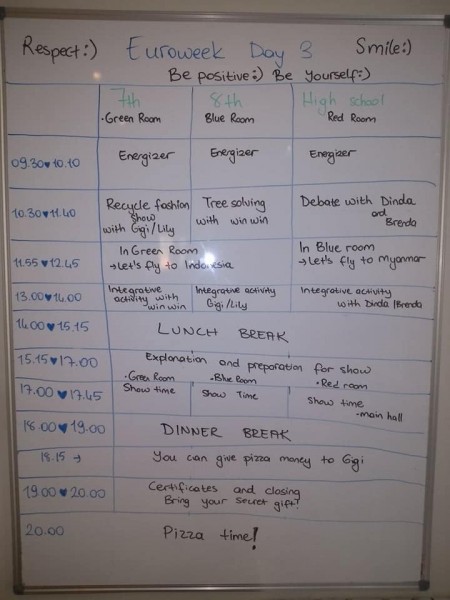 Respect:) Euroweek Day 3 Smile:)
Be positive:) Be yourself:)
7th 8th High school
·Green Room Blue Room Red Room
09.30♥10.10 Energizer Energizer Energizer
10.30♥11.40 Recycle fashion show with Gigi/Lily Tree solving with win win Debate with Dinda and Brenda
11.55♥12.45 In Green Room →Let's fly to Indonesia In Blue room →Let's fly to Myanmar
13.00♥14.00 Integrative activity with win win Integrative activity Gigi/Lily Integrative activity with Dinda/Brenda
14.00♥15.15 LUNCH BREAK
15.15♥17.00 Explanation and preparation for show
·Green Room ·Blue Room ·Red room
17.00♥17.45 Show time Show Time Show time -main hall
18.00♥19.00 DINNER BREAK
18.15→ You can give pizza money to Gigi
19.00♥20.00 Certificates and closing
Bring your secret gift!
20.00 Pizza time!